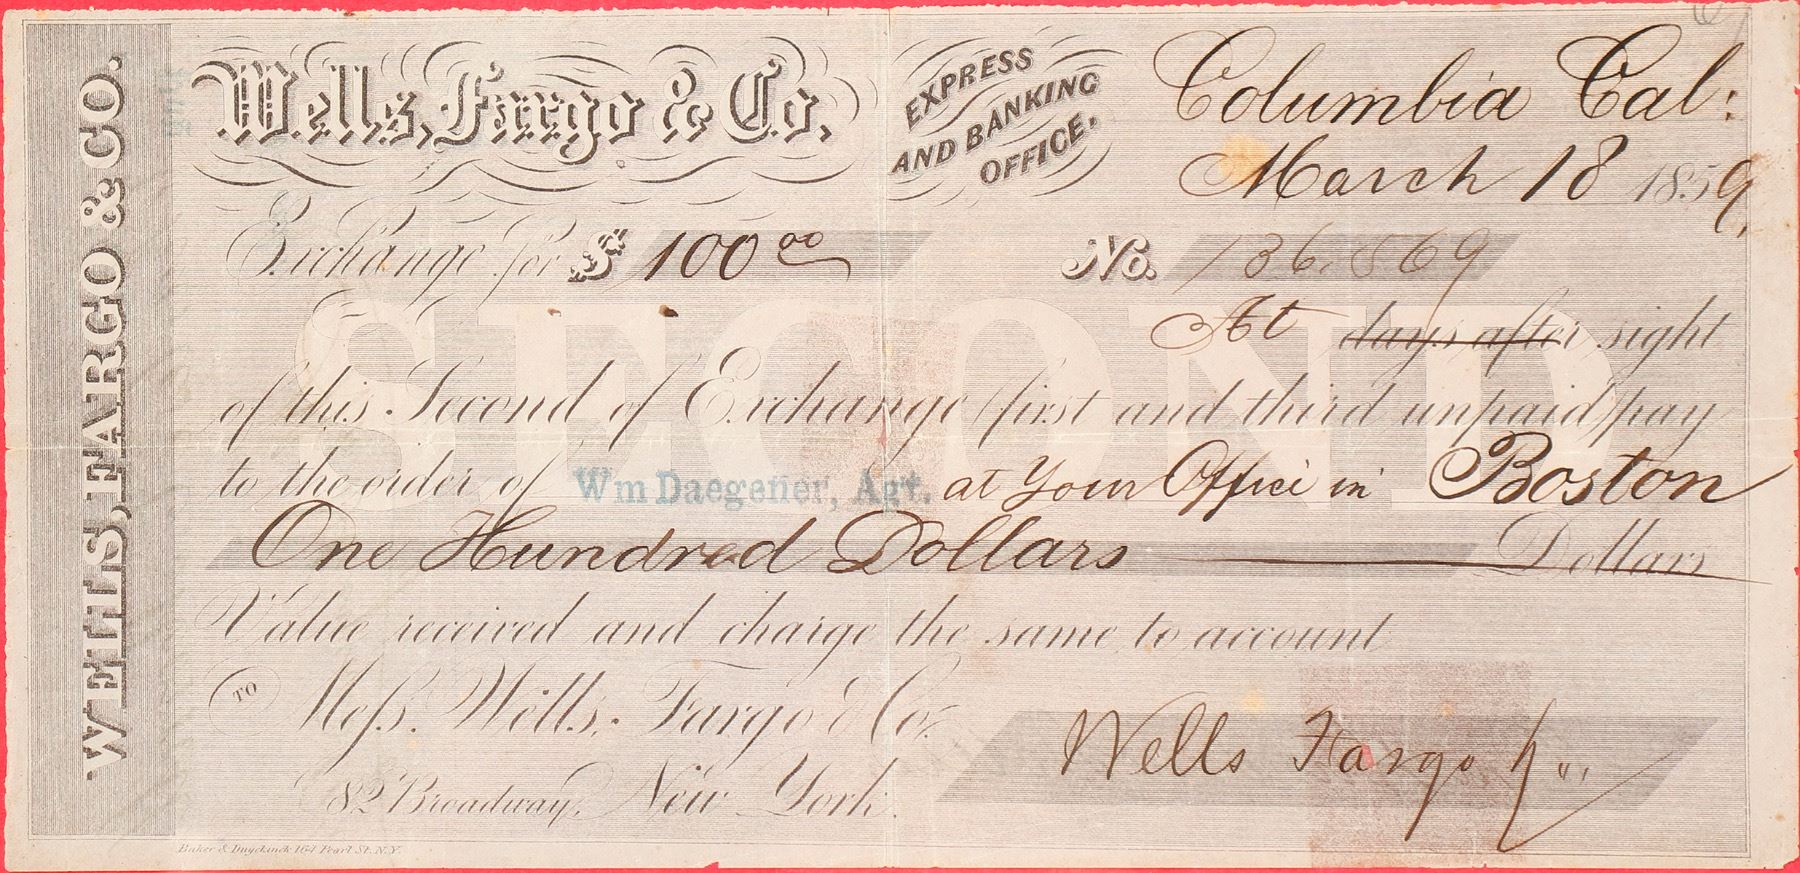 WELLS, FARGO & CO.
Wells, Fargo & Co.
EXPRESS
AND BANKING
OFFICE.
Columbia Cal:
March 18 1859.
Exchange for $ 100 00 No. 136,869
At days after sight
of this Second of Exchange (first and third unpaid) pay
to the order of Wm Daegener, Agt. at your Office in Boston
One Hundred Dollars Dollars
Value received and charge the same to account
TO Mess. Wells, Fargo & Co.
Wells Fargo
82 Broadway, New York.
SECOND
Baker & Duyckinck 164 Pearl St. N.Y.